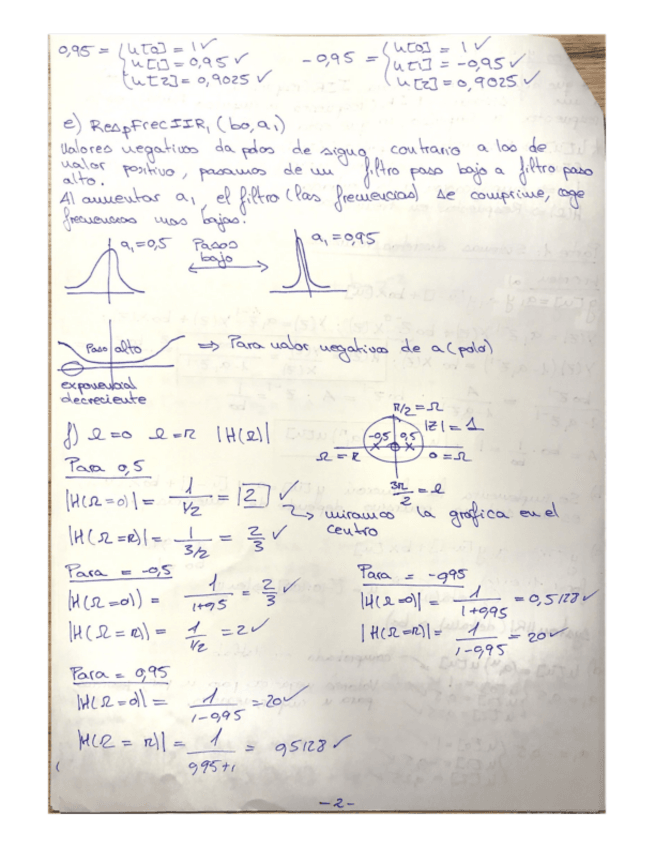 0,95 = { u[0] = 1 ✓
u[1] = 0,95 ✓
u[2] = 0,9025 ✓
-0,95 = { u[0] = 1 ✓
u[1] = -0,95 ✓
u[2] = 0,9025 ✓
e) RespFrecIIR₁ (b0, a₁)
Valores negativos da polos de signo contrario a los de
valor positivo, pasamos de un filtro paso bajo a filtro paso
alto.
Al aumentar a₁, el filtro (las frecuencias) se comprime, coge
frecuencias mas bajas.
a₁=0,5 Pasos bajo a₁=0,95
Paso alto ⇒ Para valor negativos de a (polo)
exponencial
decreciente
π/2 = Ω
|Z| = 1
-0,5 0,5
Ω = π 0 = Ω
3π/2 = Ω
f) Ω=0 Ω=π |H(Ω)|
Para 0,5
|H(Ω=0)| = 1/1/2 = 2 ✓
miramos la gráfica en el
centro
|H(Ω=π)| = 1/3/2 = 2/3 ✓
Para = -0,5
|H(Ω=0)| = 1/1+0,5 = 2/3 ✓
|H(Ω=π)| = 1/1/2 = 2 ✓
Para = -0,95
|H(Ω=0)| = 1/1+0,95 = 0,5128 ✓
|H(Ω=π)| = 1/1-0,95 = 20 ✓
Para = 0,95
|H(Ω=0)| = 1/1-0,95 = 20 ✓
|H(Ω=π)| = 1/0,95+1 = 0,5128 ✓
-2-